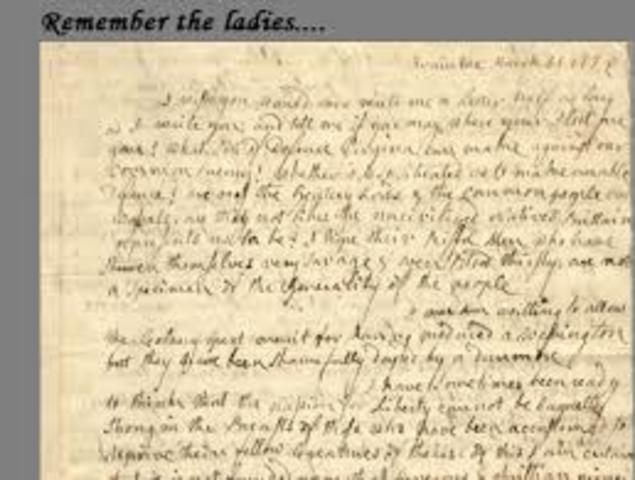 Remember the ladies....
Braintree March 31 1776
I wish you would ever write me a Letter half as long
as I write you; and tell me if you may where your Fleet are
gone? What sort of Defence Virginia can make against our
common Enemy? Whether it is so situated as to make an able
Defence? are not the Gentery Lords & the common people
vassals, are they not like the uncivilized natives Brittain
represents us to be? I hope their Riffel Men who have
shewen themselves very savage & even Blood thirsty; are not
a specimen of the Generality of the people
I am willing to allow
the Colony great merrit for having produced a Washington
but they have been shamefully duped by a Dunmore
I have sometimes been ready
to think that the passion for Liberty cannot be Eaquelly
strong in the Breasts of those who have been accustomed to
deprive their fellow Creatures of theirs. Of this I am certain